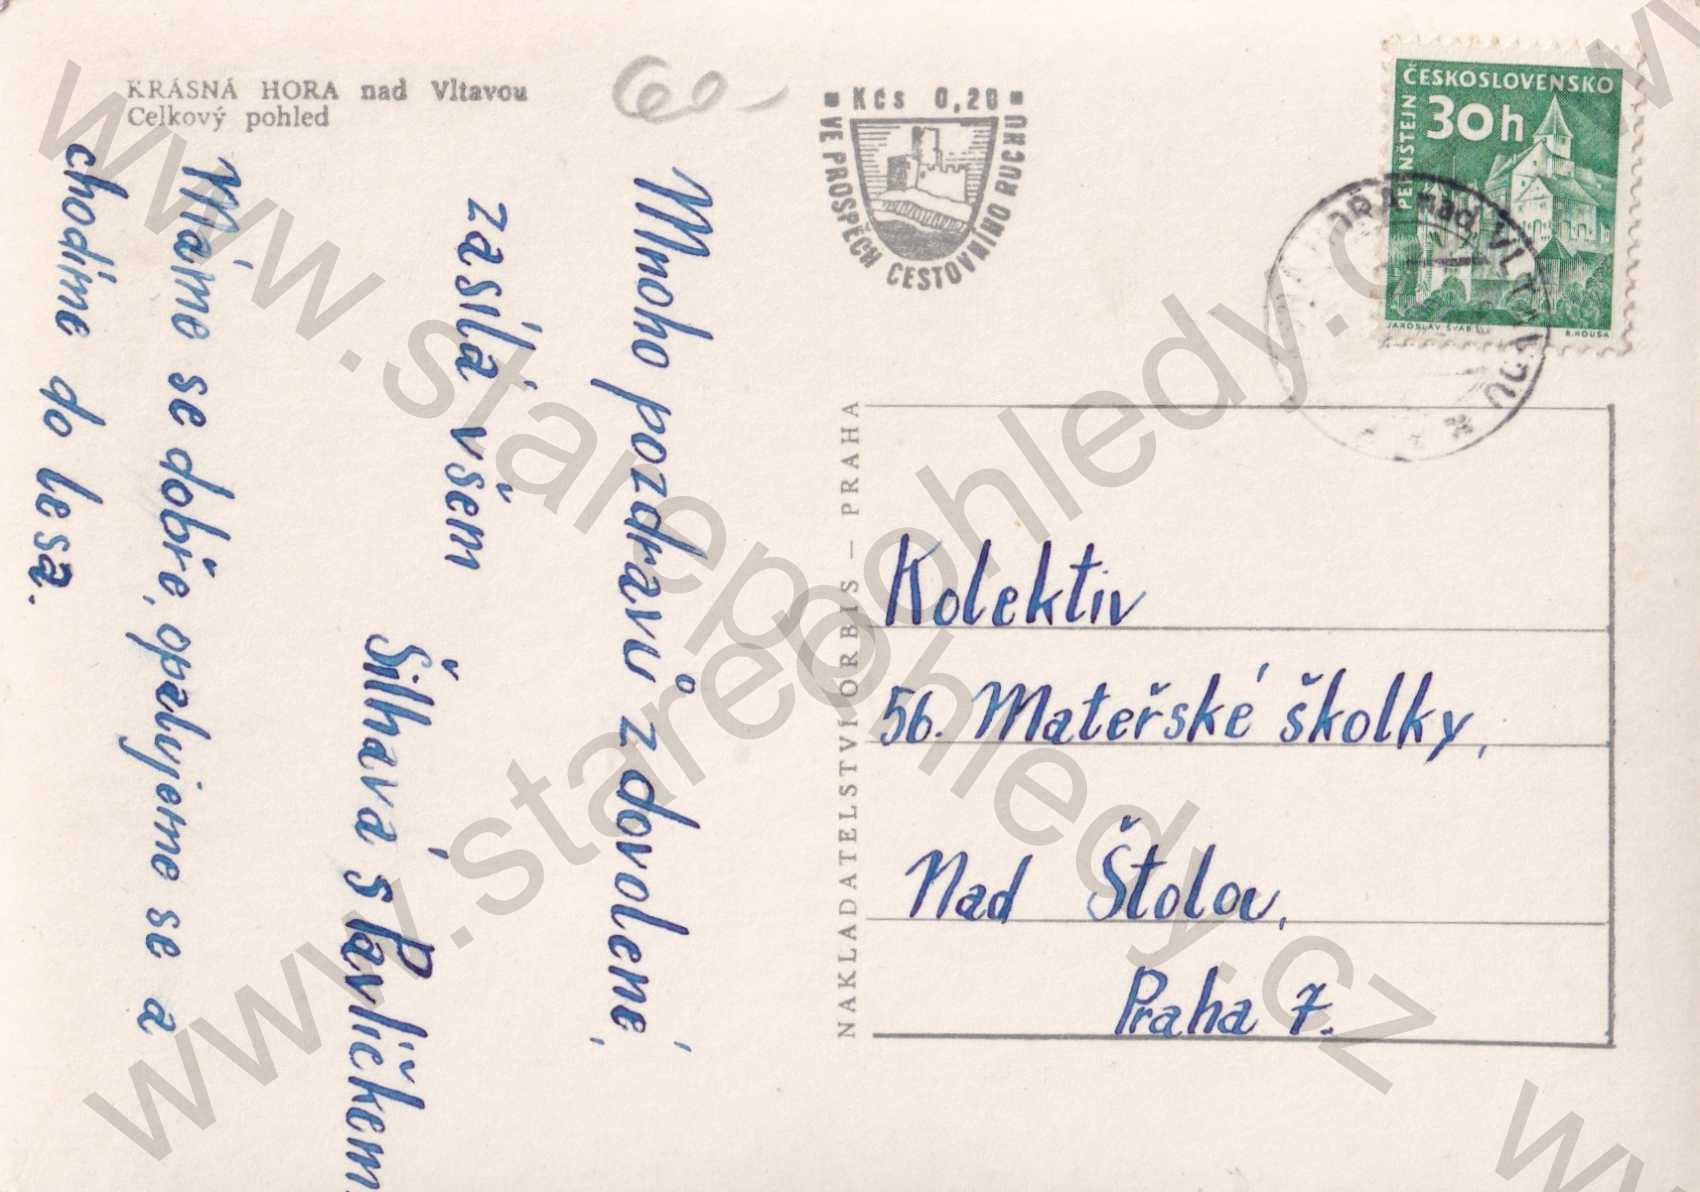 KRÁSNÁ HORA nad Vltavou
Celkový pohled
60-
Mnoho pozdravů z dovolené,
zasílá všem
Šilhavá s Pavlíčkem.
Máme se dobře, opalujeme se a
chodíme do lesa.
Kčs 0,20
VE PROSPĚCH CESTOVNÍHO RUCHU
NAKLADATELSTVÍ ORBIS – PRAHA
ČESKOSLOVENSKO
30h
PERNŠTEJN
JAROSLAV ŠVAB
B. HOUSA
HORA nad VLTAVOU
Kolektiv
56. Mateřské školky,
Nad Štolou,
Praha 7.
www.starepohledy.cz
www.starepohledy.cz